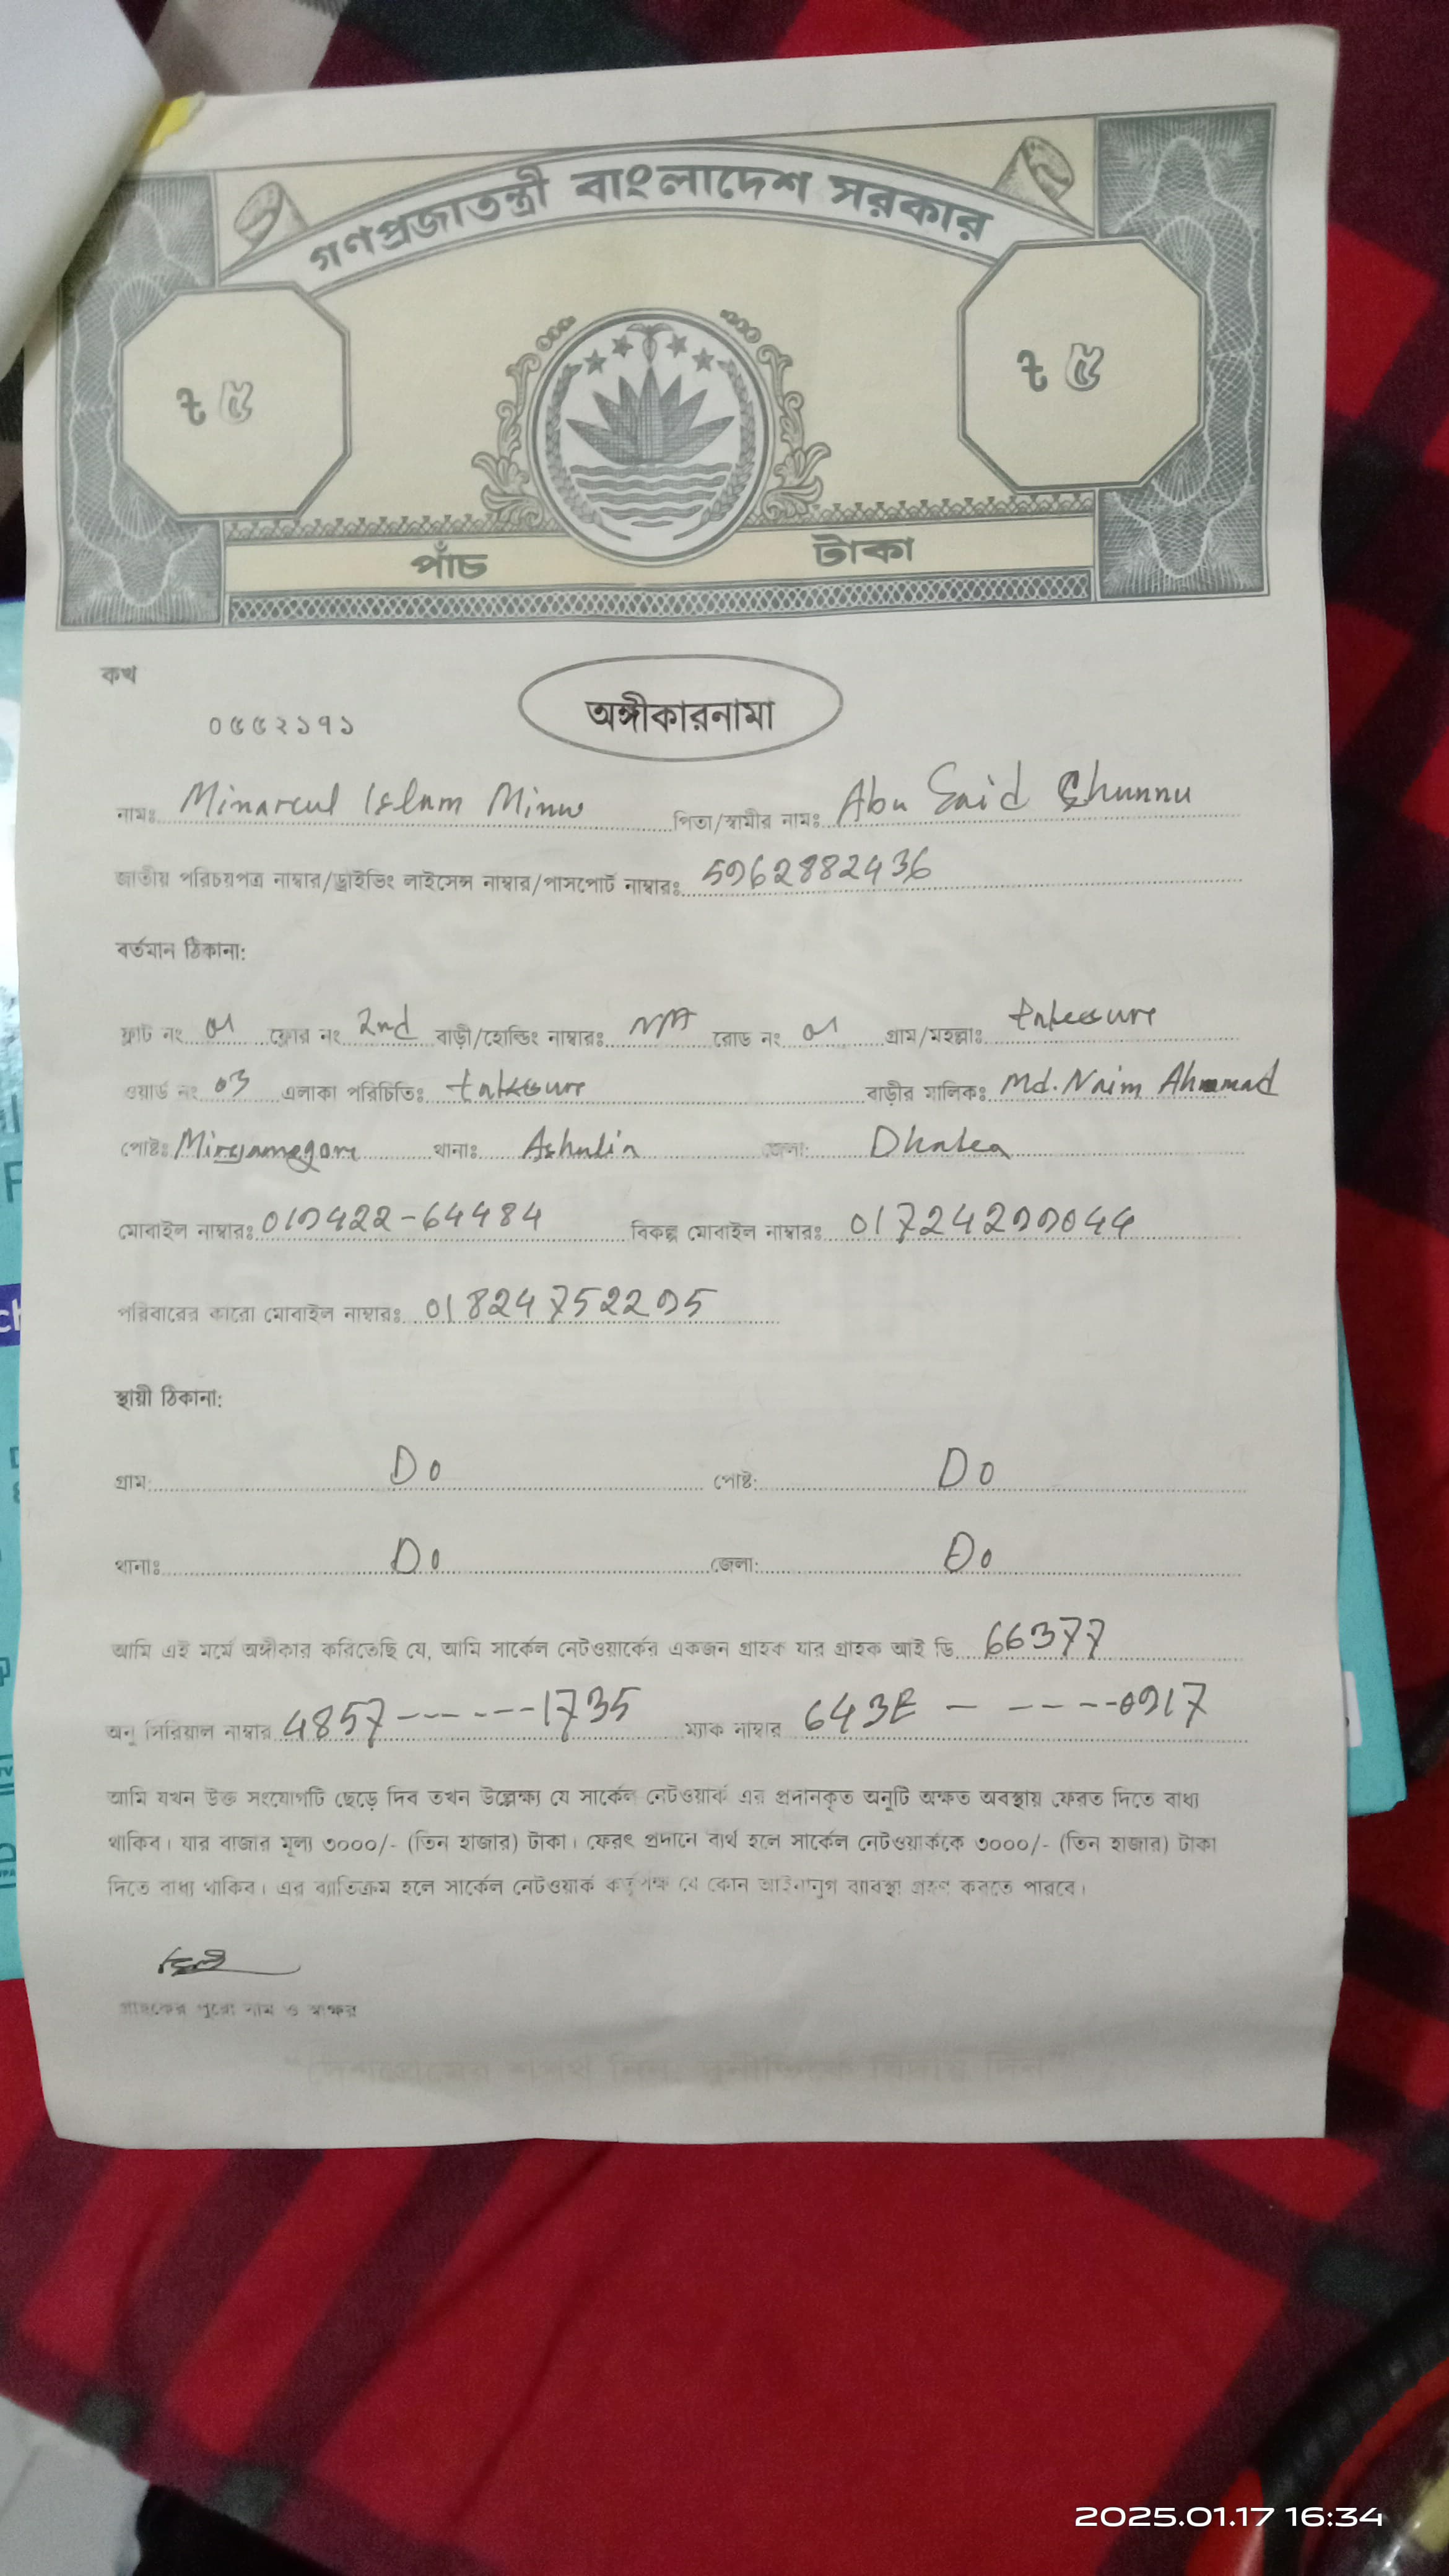 গণপ্রজাতন্ত্রী বাংলাদেশ সরকার
৳ ৫
৳ ৫
পাঁচ টাকা
কখ
০৫৫২১৭১
অঙ্গীকারনামা
নামঃ Minarcul Islam Minu পিতা/স্বামীর নামঃ Abu Said Chunnu
জাতীয় পরিচয়পত্র নাম্বার/ড্রাইভিং লাইসেন্স নাম্বার/পাসপোর্ট নাম্বারঃ 5962882436
বর্তমান ঠিকানা:
ফ্লাট নং 01 ফ্লোর নং 2nd বাড়ী/হোল্ডিং নাম্বারঃ N/A রোড নং 01 গ্রাম/মহল্লাঃ
ওয়ার্ড নং 03 এলাকা পরিচিতিঃ বাড়ীর মালিকঃ Md. Naim Ahmmad
পোষ্টঃ থানাঃ Ashulia জেলা: Dhaka
মোবাইল নাম্বারঃ 019422-64484 বিকল্প মোবাইল নাম্বারঃ 01724299044
পরিবারের কারো মোবাইল নাম্বারঃ 01824752295
স্থায়ী ঠিকানা:
গ্রাম: Do পোষ্ট: Do
থানাঃ Do জেলা: Do
আমি এই মর্মে অঙ্গীকার করিতেছি যে, আমি সার্কেল নেটওয়ার্কের একজন গ্রাহক যার গ্রাহক আই ডি 66377
অনু সিরিয়াল নাম্বার 4857------1735 ম্যাক নাম্বার 643E - ----0917
আমি যখন উক্ত সংযোগটি ছেড়ে দিব তখন উল্লেক্ষ্য যে সার্কেল নেটওয়ার্ক এর প্রদানকৃত অনুটি অক্ষত অবস্থায় ফেরত দিতে বাধ্য
থাকিব। যার বাজার মূল্য ৩০০০/- (তিন হাজার) টাকা। ফেরৎ প্রদানে ব্যর্থ হলে সার্কেল নেটওয়ার্ককে ৩০০০/- (তিন হাজার) টাকা
দিতে বাধ্য থাকিব। এর ব্যাতিক্রম হলে সার্কেল নেটওয়ার্ক কর্তৃপক্ষ যে কোন আইনানুগ ব্যাবস্থা গ্রহণ করতে পারবে।
গ্রাহকের পুরো নাম ও স্বাক্ষর
2025.01.17 16:34